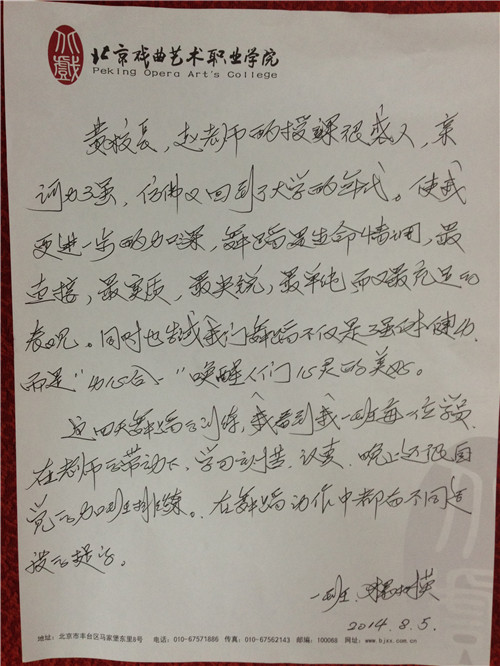 北戲
北京戏曲艺术职业学院
Peking Opera Art's College
黄校长，赵老师的授课很感人，亲
切力强，仿佛又回到了大学的年代。使我
更进一步的加深，舞蹈是生命情调，最
直接，最实质，最尖锐，最单纯而又最充足的
表现。同时也告诉我们舞蹈不仅是强身健功
而是"功心合一"唤醒人们心灵的美好。
这四天舞蹈的训练，我看到我一班每一位学员
在老师的带动下，学习认真，晚上还很自
觉的加班排练。在舞蹈动作中都有不同程
度的提高。
一班
2014.8.5.
地址：北京市丰台区马家堡东里8号 电话：010-67571886 传真：010-67562143 邮编：100068 网址：www.bjxx.com.cn